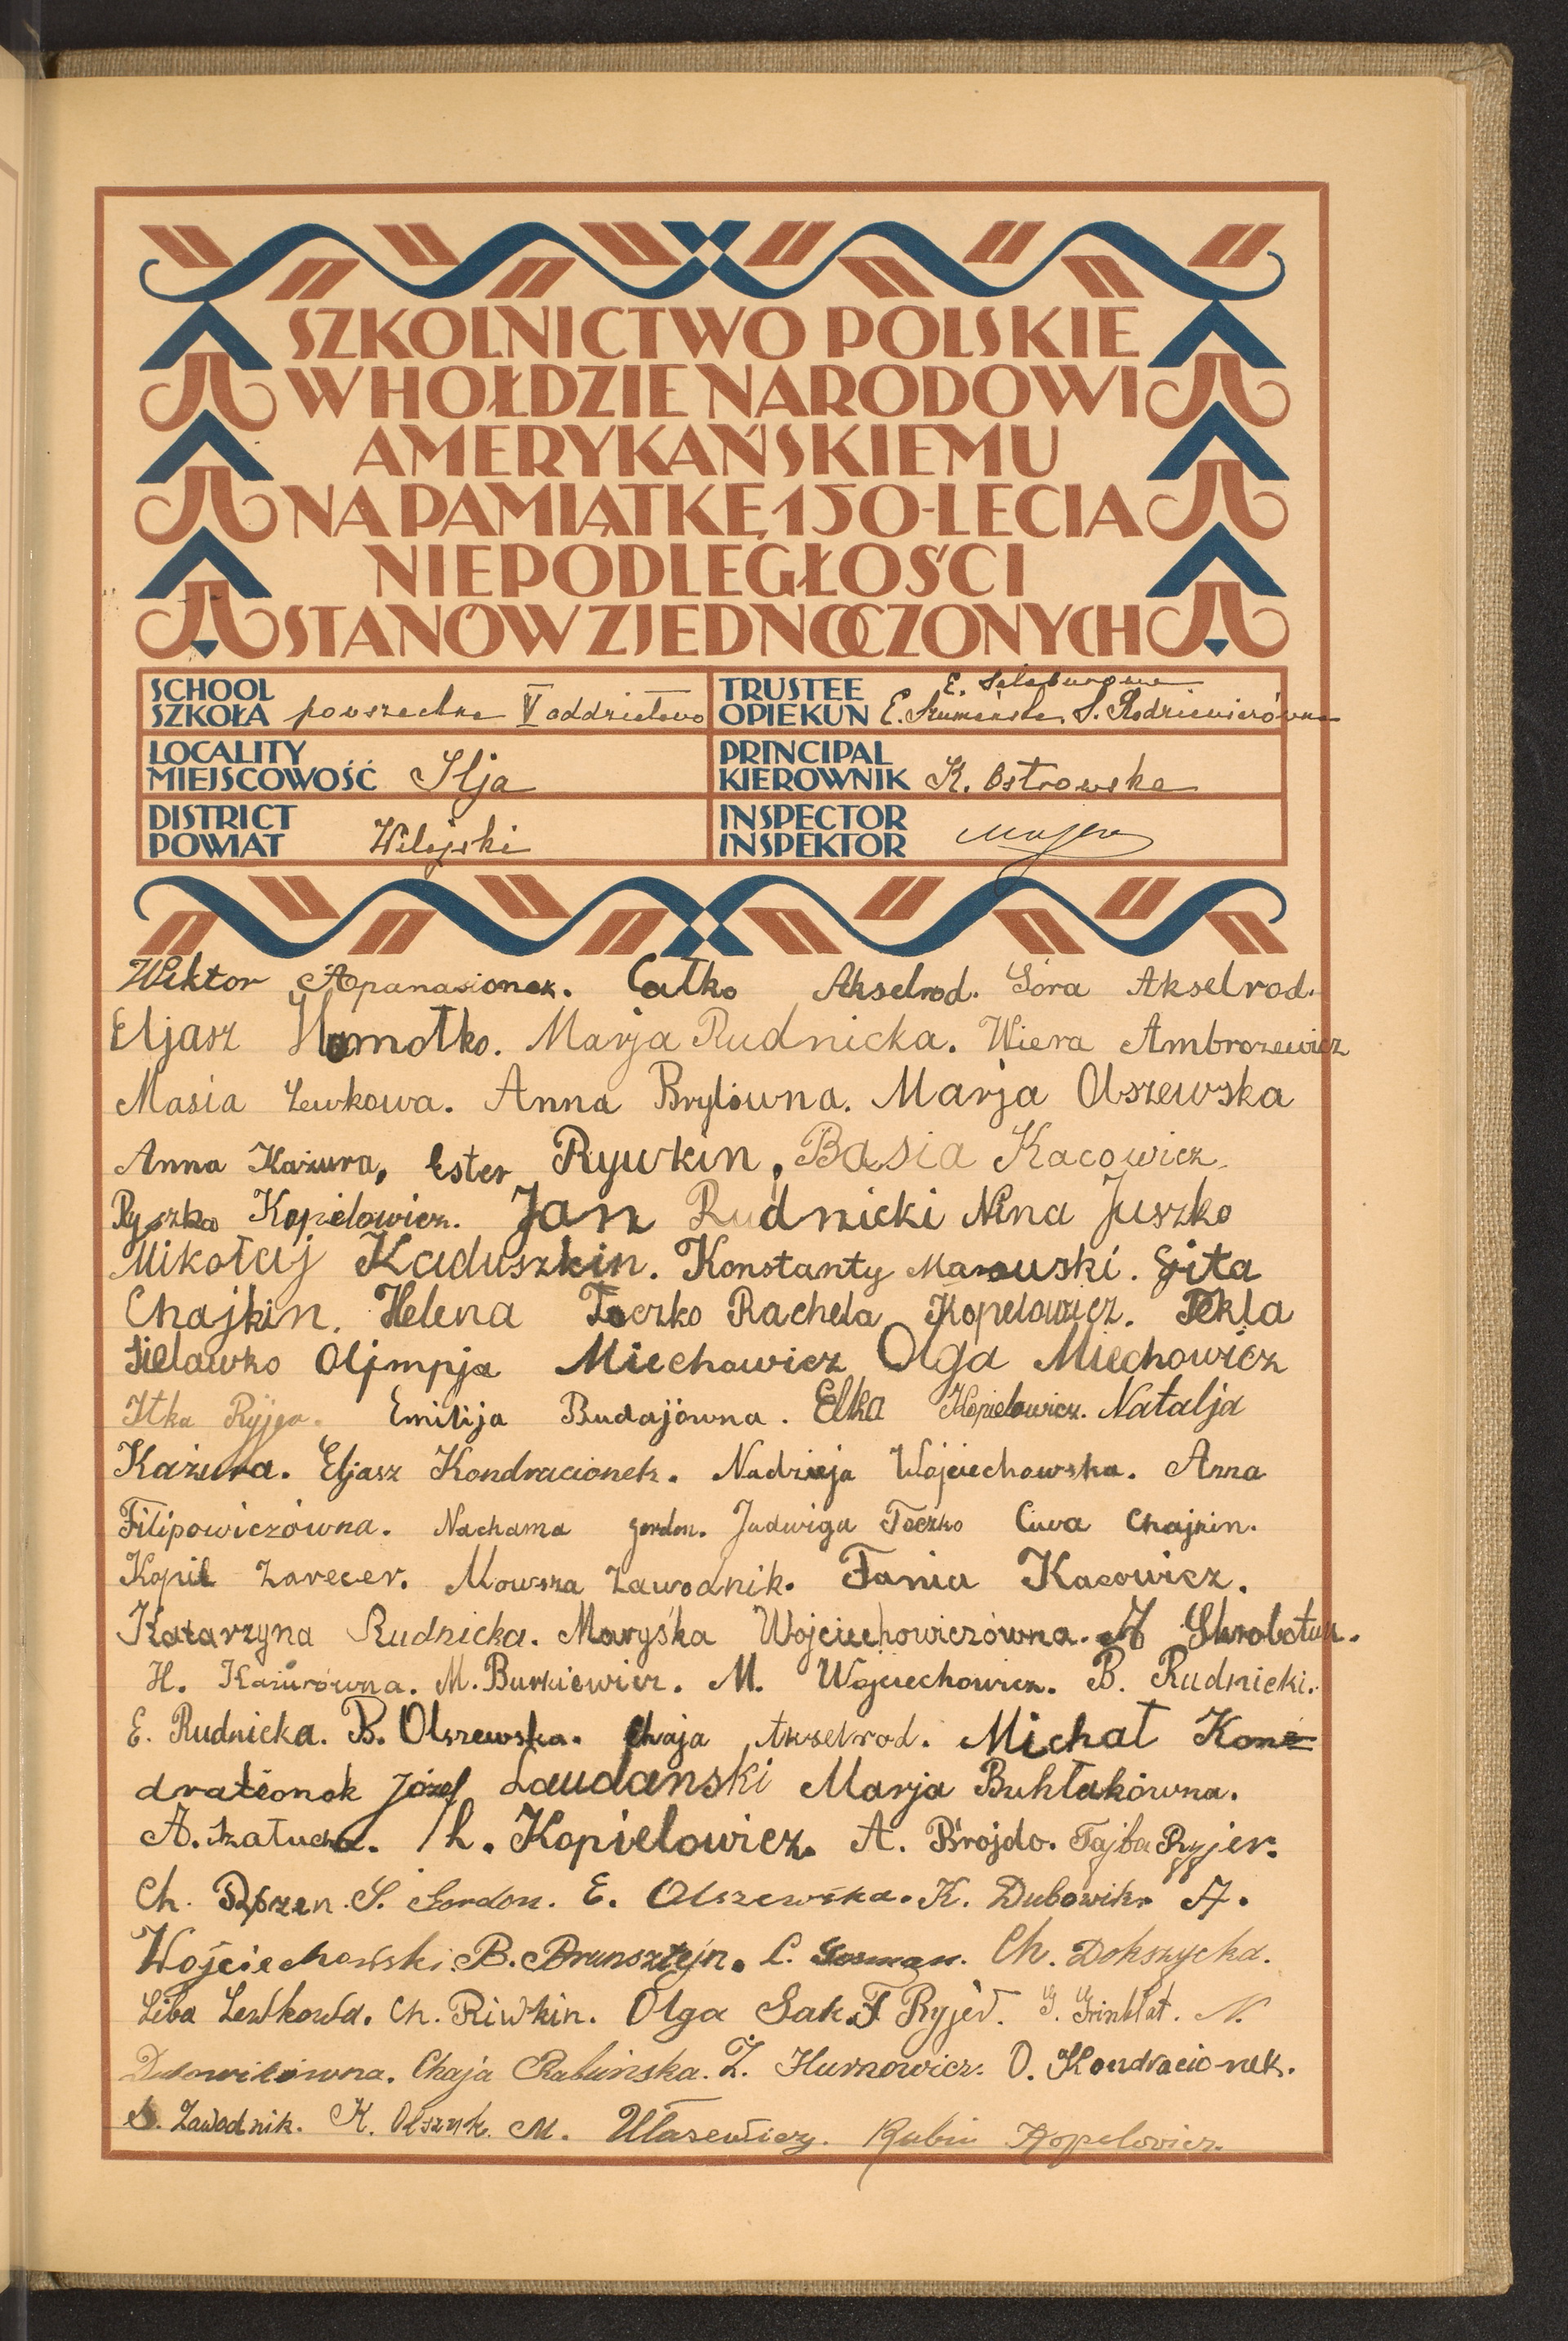 SZKOLNICTWO POLSKIE
W HOŁDZIE NARODOWI
AMERYKAŃSKIEMU
NA PAMIĄTKĘ 150-LECIA
NIEPODLEGŁOŚCI
STANÓW ZJEDNOCZONYCH
SCHOOL
SZKOŁA powszechna V oddziałowa
LOCALITY
MIEJSCOWOŚĆ Ilja
DISTRICT
POWIAT Wilejski
TRUSTEE
OPIEKUN E. S. Rodziewiczówna
PRINCIPAL
KIEROWNIK K. Ostrowska
INSPECTOR
INSPEKTOR
Wiktor Apanasionek. Całko Akselrod. Sora Akselrod.
Eljasz Hamołko. Marja Rudnicka. Wiera Ambrozewicz
Masia Lewkowa. Anna Brylówna. Marja Olszewska
Anna Każura, Ester Rywkin, Basia Kacowicz
Ryszka Kopielowicz. Jan Rudnicki Nina Juszko
Mikołaj Kaduszkin. Konstanty Marouski. Gita
Chajkin. Helena Toczko Rachela Kopelowicz. Tekla
Sielawko Oljmpja Miechowicz Olga Miechowicz
Itka Ryjer. Emilija Budajówna. Elka Kopielowicz. Natalja
Każura. Eljasz Kondracionek. Nadzieja Wojciechowska. Anna
Filipowiczówna. Nachama Gordon. Jadwiga Toczko Ciwa Chajkin.
Kopil Zarecer. Mowsza Zawodnik. Fania Kacowicz.
Katarzyna Rudnicka. Maryśka Wojciechowiczówna. A Skrobatun.
H. Każurówna. M. Burkiewicz. M. Wojciechowicz. B. Rudnicki.
E. Rudnicka. B. Olszewska. Chaja Akselrod. Michał Kon=
dracionok Józef Laudanski Marja Buhłakówna.
A. Szałucha. Ch. Kopielowicz. A. Brojdo. Tajba Ryjer.
Ch. S. Gordon. E. Olszewska. K. Dubowik. A.
Wojciechowski. B. Brunsztejn. L. Gosman. Ch. Dokszycka.
Liba Lewkowa. Ch. Riwkin. Olga Sak. F Ryjer. G. Grinblat. N.
Dubowikówna. Chaja Rabińska. Z. Hurnowicz. O. Kondracionek.
S. Zawodnik. K. Olszuk. M. Ułasewicz. Rubin Kopelovicz.